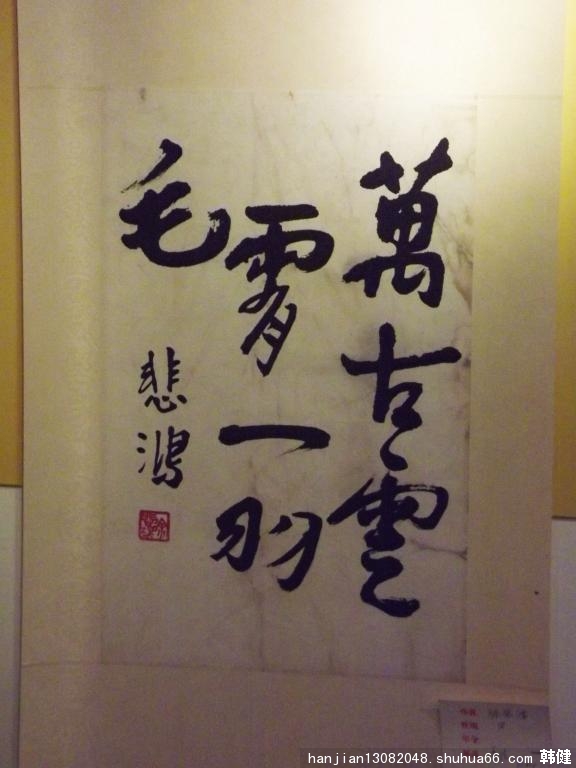 萬古雲
霄一羽
毛
悲鴻
hanjian13082048.shuhua66.com 韩健